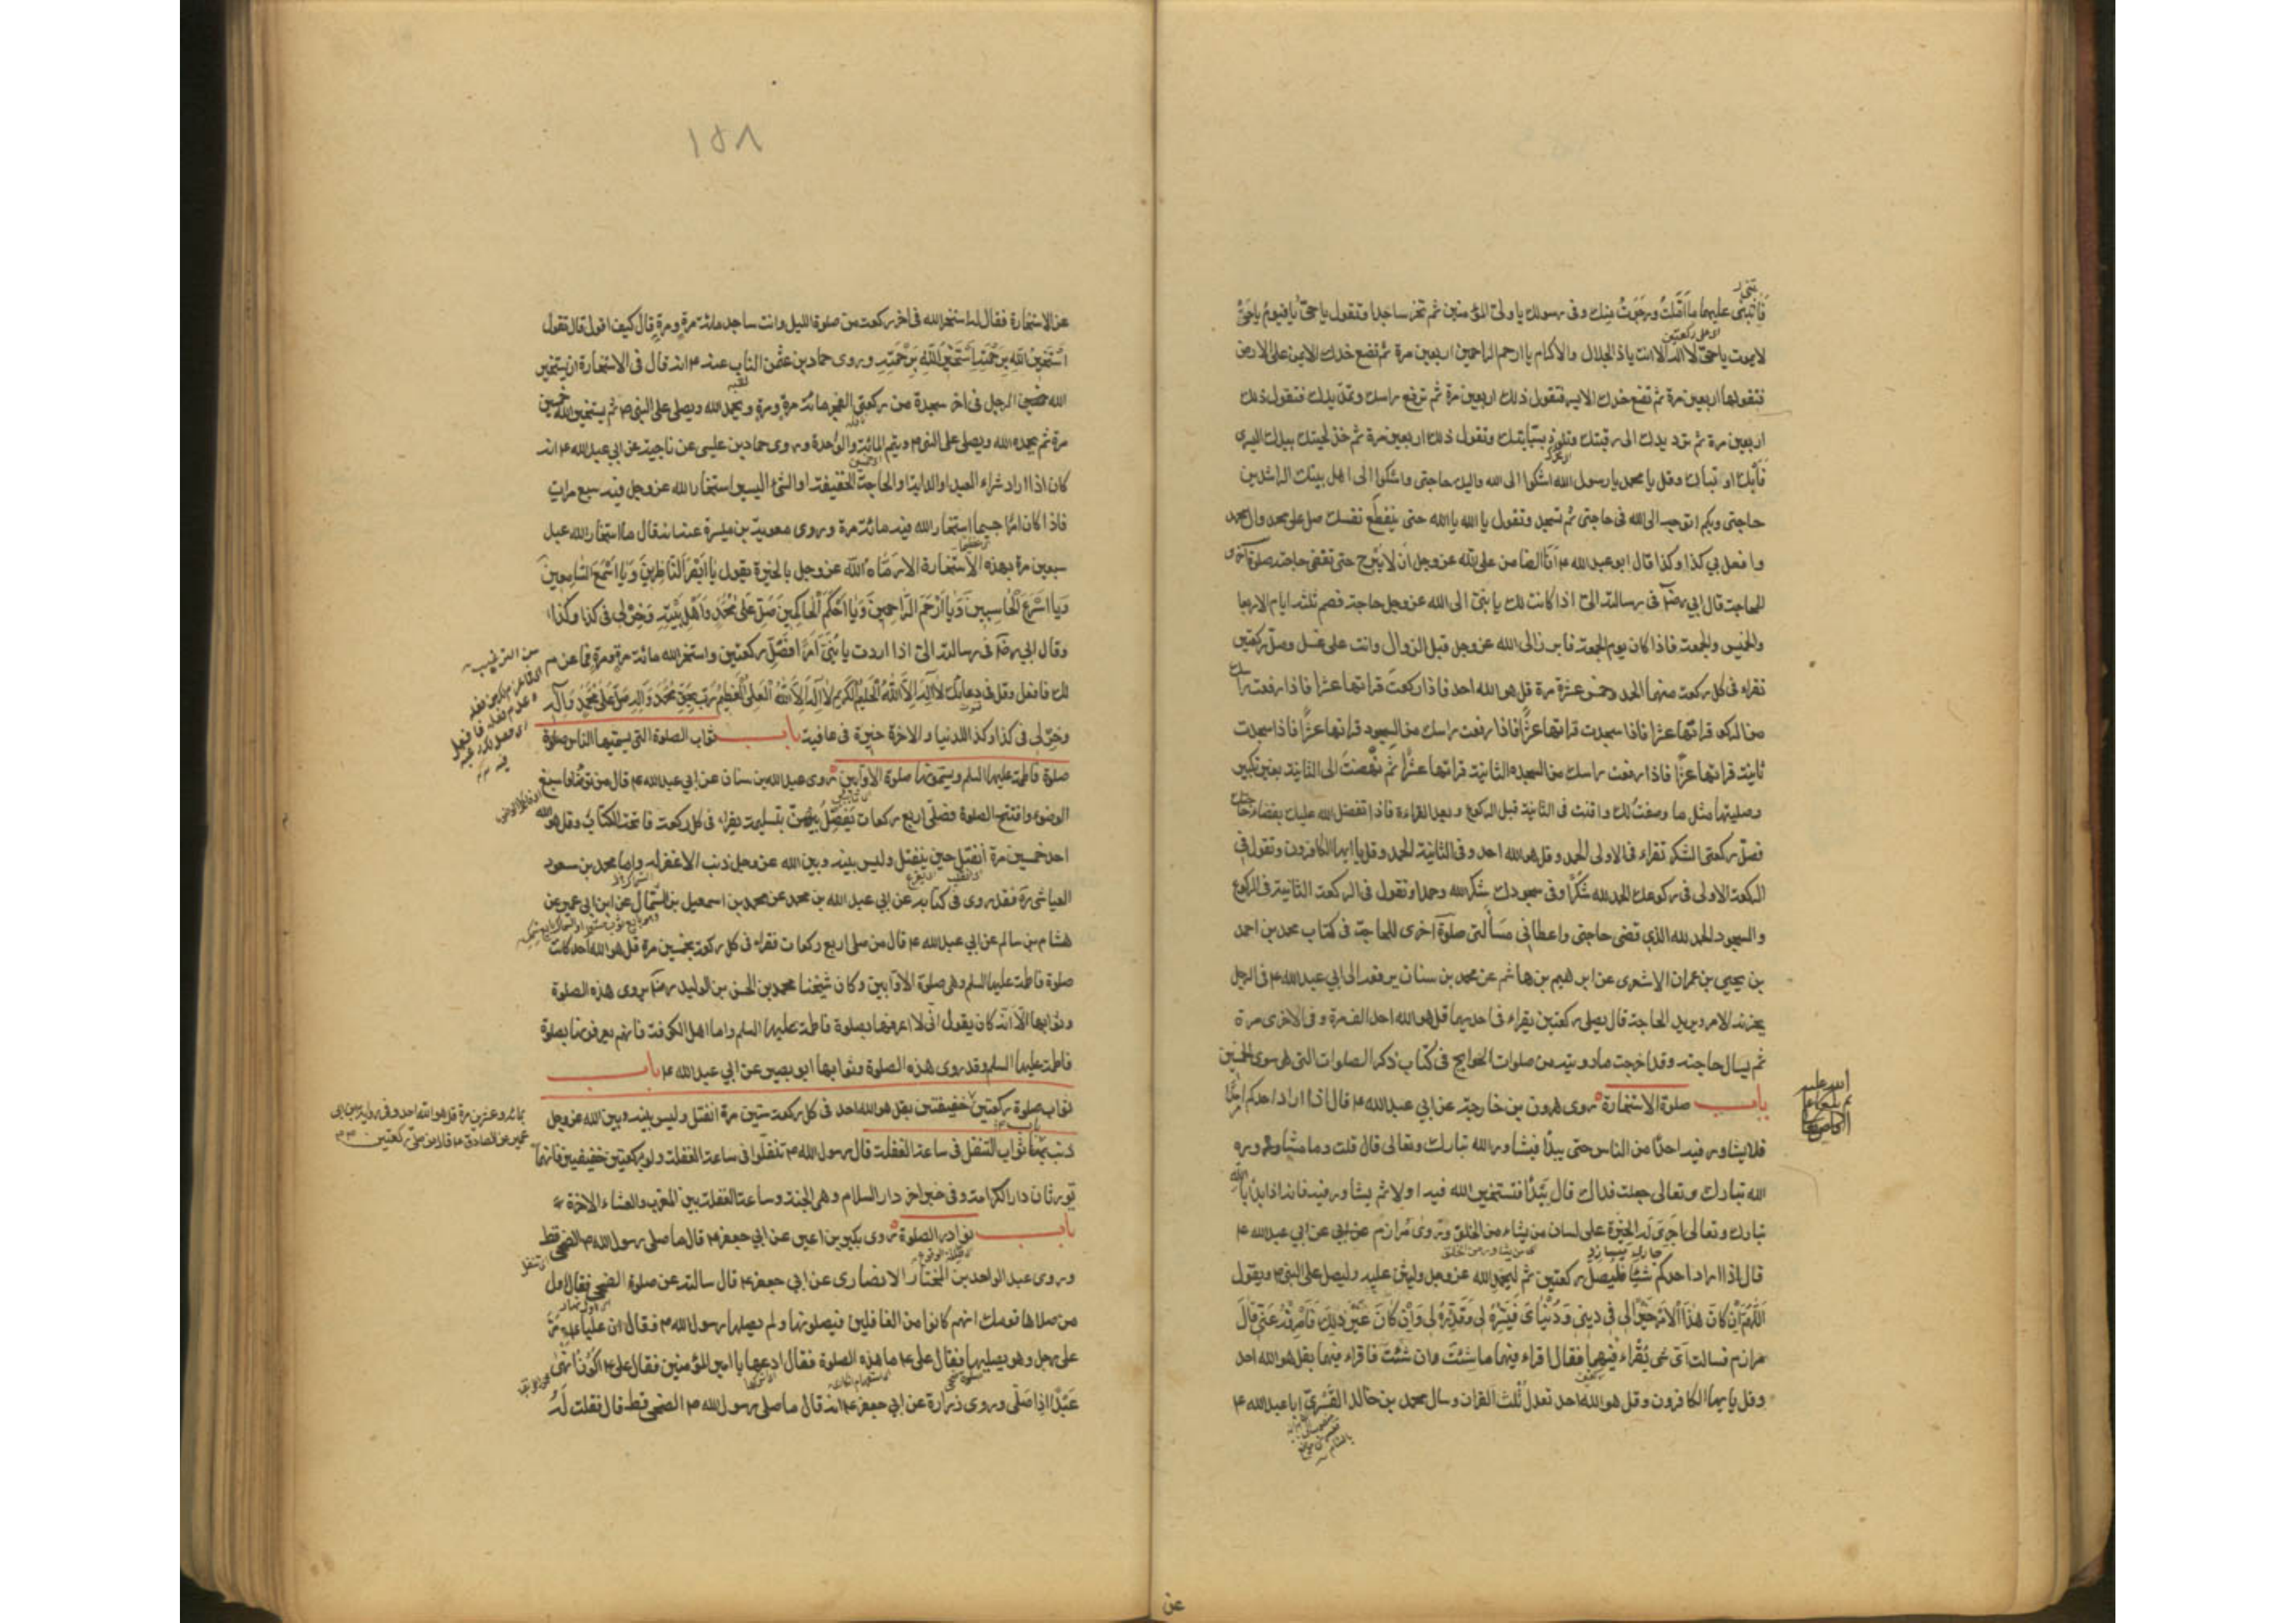 عليهما ما املت ورجوت منك وفى رسولك يا ولى المؤمنين ثم تخر ساجدا وتقول ياحى يا قيوم ياحى
لايموت ياحى لا اله الا انت ياذا الجلال والاكرام يا ارحم الراحمين اربعين مرة ثم تضع خدك الايمن على الارض
فتقولها اربعين مرة ثم تضع خدك الايسر فتقول ذلك اربعين مرة ثم ترفع راسك وتمد يدك فتقول ذلك
اربعين مرة ثم ترد يدك الى رقبتك وتلوذ بسبابتك وتقول ذلك اربعين مرة ثم خذ لحيتك بيدك اليسرى
فابك او تباك وقل يا محمد يا رسول الله اشكوا الى الله واليك حاجتى واشكوا الى اهل بيتك الراشدين
حاجتى وبكم اتوجه الى الله فى حاجتى ثم تسجد وتقول يا الله يا الله حتى ينقطع نفسك صل على محمد وال محمد
وافعل بي كذا وكذا قال ابو عبد الله ع انا الضامن على الله عز وجل ان لا يبرح حتى تقضى حاجته صلوة اخرى
للحاجة قال ابي رض فى رسالته الىّ اذا كانت لك يا بنىّ الى الله عز وجل حاجة فصم ثلثة ايام الاربعا
والخميس والجمعة فاذا كان يوم الجمعة فابرز الى الله عز وجل قبل الزوال وانت على غسل وصل ركعتين
تقراء فى كل ركعة منهما الحمد وخمس عشرة مرة قل هو الله احد فاذا ركعت قراتها عشرا فاذا رفعت راسك
من الركوع قراتها عشرا فاذا سجدت قراتها عشرا فاذا رفعت راسك من السجود قراتها عشرا فاذا سجدت
ثانية قراتها عشرا فاذا رفعت راسك من السجده الثانية قراتها عشرا ثم نهضت الى الثانية بغير تكبير
وصليتها مثل ما وصفت لك واقنت فى الثانية قبل الركوع وبعد القراءة فاذا تفضل الله عليك بقضاء حاجتك
فصل ركعتى الشكر تقراء فى الاولى الحمد وقل هو الله احد وفى الثانية الحمد وقل يا ايها الكافرون وتقول فى
الركعة الاولى فى ركوعك الحمد لله شكرا وفى سجودك شكرا لله وحمدا وتقول فى الركعة الثانية فى الركوع
والسجود الحمد لله الذي قضى حاجتى واعطانى مسألتى صلوة اخرى للحاجة فى كتاب محمد بن احمد
بن يحيى بن عمران الاشعرى عن ابرهيم بن هاشم عن محمد بن سنان يرفعه الى ابي عبد الله ع فى الرجل
يحزنه الامر ويريد الحاجة قال يصلى ركعتين يقراء فى احديهما قل هو الله احد الف مرة وفى الاخرى مرة
ثم يسال حاجته وقد اخرجت ما رويته من صلوات الحوايج فى كتاب ذكر الصلوات التى هى سوى الخمسين
باب صلوة الاستخارة روى هرون بن خارجة عن ابي عبد الله ع قال اذا اراد احدكم امرا
فلا يشاور فيه احدا من الناس حتى يبدأ فيشاور الله تبارك وتعالى قال قلت وما مشاورة
الله تبارك وتعالى جعلت فداك قال يبدأ فتستخير الله فيه اولا ثم يشاور فيه فانه اذا بدأ بالله
تبارك وتعالى اجرى له الخيرة على لسان من يشاء من الخلق وروى مرازم عن ابي عبد الله ع
قال اذا اراد احدكم شيئا فليصل ركعتين ثم ليحمد الله عز وجل وليثن عليه وليصل على النبى ص ويقول
اللهم ان كان هذا الامر خيرا لى فى دينى ودنياى فيسره لى وقدره لى وان كان غير ذلك فاصرفه عنى قال
مرازم فسالت اى شى يقراء فيهما فقال اقراء فيهما ما شئت وان شئت فاقراء فيهما بقل هو الله احد
وقل يا ايها الكافرون وقل هو الله احد تعدل ثلث القران وسال محمد بن خالد القسرى ابا عبد الله ع
عن
١٥٨
عن الاستخارة فقال له استخر الله فى اخر ركعة من صلوة الليل وانت ساجد مائة مرة ومرة قال كيف اقول قال تقول
استخير الله برحمته استخير الله برحمته وروى حماد بن عثمن الناب عنه ع انه قال فى الاستخارة ان يستخير
الله الرجل فى اخر سجدة من ركعتى الفجر مائة مرة ومرة ويحمد الله ويصلى على النبى ص ثم يستخير الله خمسين
مرة ثم يحمد الله ويصلى على النبى ص ويتم المائة والواحدة وروى حماد بن عيسى عن ناجية عن ابي عبد الله ع انه
كان اذا اراد شراء العبد او الدابة او الحاجة الخفيفة او الشئ اليسير استخار الله عز وجل فيه سبع مرات
فاذا كان امرا جسيما استخار الله فيه مائة مرة وروى معوية بن ميسرة عنه انه قال ما استخار الله عبد
سبعين مرة بهذه الاستخارة الا رماه الله عز وجل بالخيرة يقول يا ابصر الناظرين ويا اسمع السامعين
ويا اسرع الحاسبين ويا ارحم الراحمين ويا احكم الحاكمين صل على محمد واهل بيته وخر لى فى كذا وكذا
وقال ابي رض فى رسالته الىّ اذا اردت يا بنىّ امرا فصل ركعتين واستخر الله مائة مرة ومرة فما عزم
لك فافعل وقل فى دعائك لا اله الا الله الحليم الكريم لا اله الا الله العلى العظيم رب بحق محمد واله صل على محمد واله
وخر لى فى كذا وكذا للدنيا والاخرة خيرة فى عافية باب ثواب الصلوة التى يسميها الناس صلوة
صلوة فاطمة عليها السلم ويسمونها صلوة الاوابين روى عبد الله بن سنان عن ابي عبد الله ع قال من توضا فاسبغ
الوضوء وافتتح الصلوة فصلى اربع ركعات يفصل بينهن بتسليمة يقراء فى كل ركعة فاتحة الكتاب وقل هو الله
احد خمسين مرة انفتل حين ينفتل وليس بينه وبين الله عز وجل ذنب الا غفر له واما محمد بن مسعود
العياشى ره فقد روى فى كتابه عن ابي عبد الله بن محمد عن محمد بن اسمعيل بن السماك عن ابن ابى عمير عن
هشام بن سالم عن ابي عبد الله ع قال من صلى اربع ركعات فقراء فى كل ركعة بخمسين مرة قل هو الله احد كانت
صلوة فاطمة عليها السلم وهى صلوة الاوابين وكان شيخنا محمد بن الحسن بن الوليد رض يروى هذه الصلوة
وثوابها الا انه كان يقول انى لا اعرفها بصلوة فاطمة عليها السلم واما اهل الكوفة فانهم يعرفونها بصلوة
فاطمة عليها السلم وقد روى هذه الصلوة وثوابها ابو بصير عن ابي عبد الله ع باب
ثواب صلوة ركعتين خفيفتين بقل هو الله احد فى كل ركعة ستين مرة انفتل وليس بينه وبين الله عز وجل
ذنب ثواب التنفل فى ساعة الغفلة قال رسول الله ص تنفلوا فى ساعة الغفلة ولو بركعتين خفيفتين فانهما
تورثان دار الكرامة وفى خبر اخر دار السلام وهى الجنة وساعة الغفلة بين المغرب والعشاء الاخرة
باب نوادر الصلوة روى بكير بن اعين عن ابي جعفر ع قال ما صلى رسول الله ص الضحى قط
وروى عبد الواحد بن المختار الانصارى عن ابي جعفر ع قال سالته عن صلوة الضحى فقال اول
من صلاها قومك انهم كانوا من الغافلين فيصلونها ولم يصلها رسول الله ص فقال ان عليا ع مر
على رجل وهو يصليها فقال على ع ما هذه الصلوة فقال ادعها يا امير المؤمنين فقال على ع اكون انهى
عبدا اذا صلى وروى زرارة عن ابي جعفر ع انه قال ما صلى رسول الله ص الضحى قط قال فقلت له
بمائة وعشرين مرة قل هو الله احد وفى رواية ابن ابى
عمير عن الصادق ع قال من صلى ركعتين